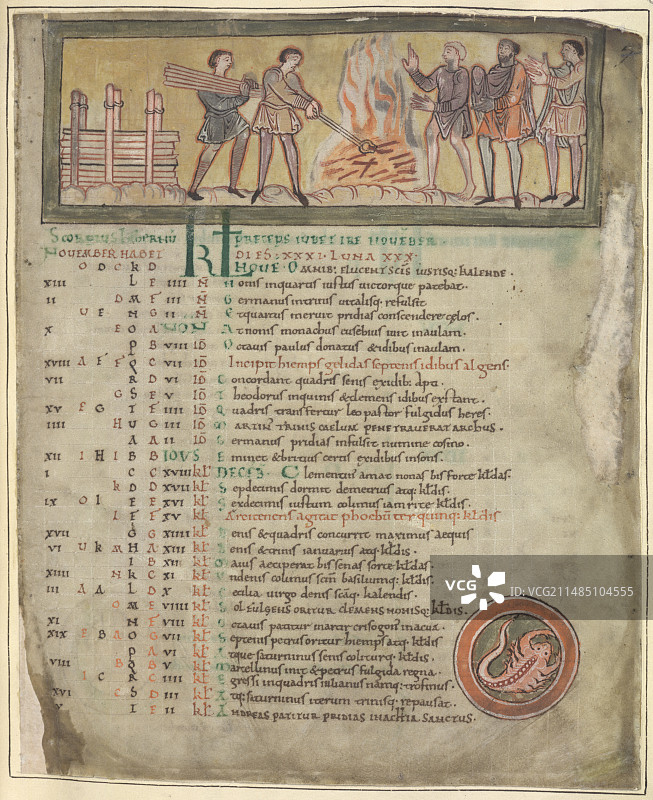 SCORPIUS hIBERNU
PRECEPS IUBET IRE NOUEMBER
NOUEMBER HABET
DIES: XXXI. LUNA XXX.
O D C K D
NOUE. OMNIB: ELUCENT SCIS IUSTISQ: KALENDE.
XIII L E IIII N Nonis inquarus iustus uictorque patebat.
II D M F III N Germanus intrius uitalisq: refulsit
U E N G II N Et quartus meruit pridias conscendere celos.
X E O A NON At nonis monachus eusebius iuit inaulam.
P B VIII ID Octauus paulus donatus & idibus inaulam.
XVIII A F F Q C VII ID Incipit hiemps gelidas septenis idibus algens.
VII R D VI ID Concordant quadris senis exidib: dpa.
G S E V ID Theodorus inquinis & clemens idibus exstant.
XV F G T F IIII ID Quadris transfertur leo pastor fulgidus heres.
IIII H U G III ID MARTIN' TRINIS CAELUM PENETRAUERAT ARCIBUS.
A A II ID Germanus pridias infulsit numine cosmo.
XII I H I B B IDUS Eminet & britius certis exidibus insons.
I C C XVIII KL DECEB. Clementus amat nonas bis forte kldas.
K D D XVII KL Septdecimis dormit demetrius atq: kldis
IX O I E E XVI KL Sexdecimis iustum colimus iam rite kldis.
I F F XV KL Arcitenens agitat phoebum ter quinq: kldis
XVII G G XIIII KL Senis & quadris concurrit maximus aequis
VI U K M H A XIII KL Senis & trinis ianuarius atq: kldis.
I B XII KL Oauus aeciperat bis senas sorte kldas.
XIIII N K C XI KL Undenis colimus scm basilium q: kldis.
III A A L D X KL Cecilia uirgo denis scaq: kalendis.
O M E VIIII KL SOL FULGENS ORITUR CLEMENS NONISQ: KLDIS.
XI N F VIII KL Octauis patitur martir crisogonus inacua.
XIX E B A O G VII KL Septenis petrus oritur hiemps atq: kldis
P A VI KL Atque saturninus senis colitur q: kldis.
VIII B Q B V KL Martellinus init & petrus fulgida regna.
I C R C IIII KL Egressi inquadris iulianus namq: trofinus.
XVI C S D III KL Atq: saturninus iterum trinisq: repausat.
V I E II KL ANDREAS PATITUR PRIDIAS INACHIA SANCTUS.
VCG ID:VCG211485104555